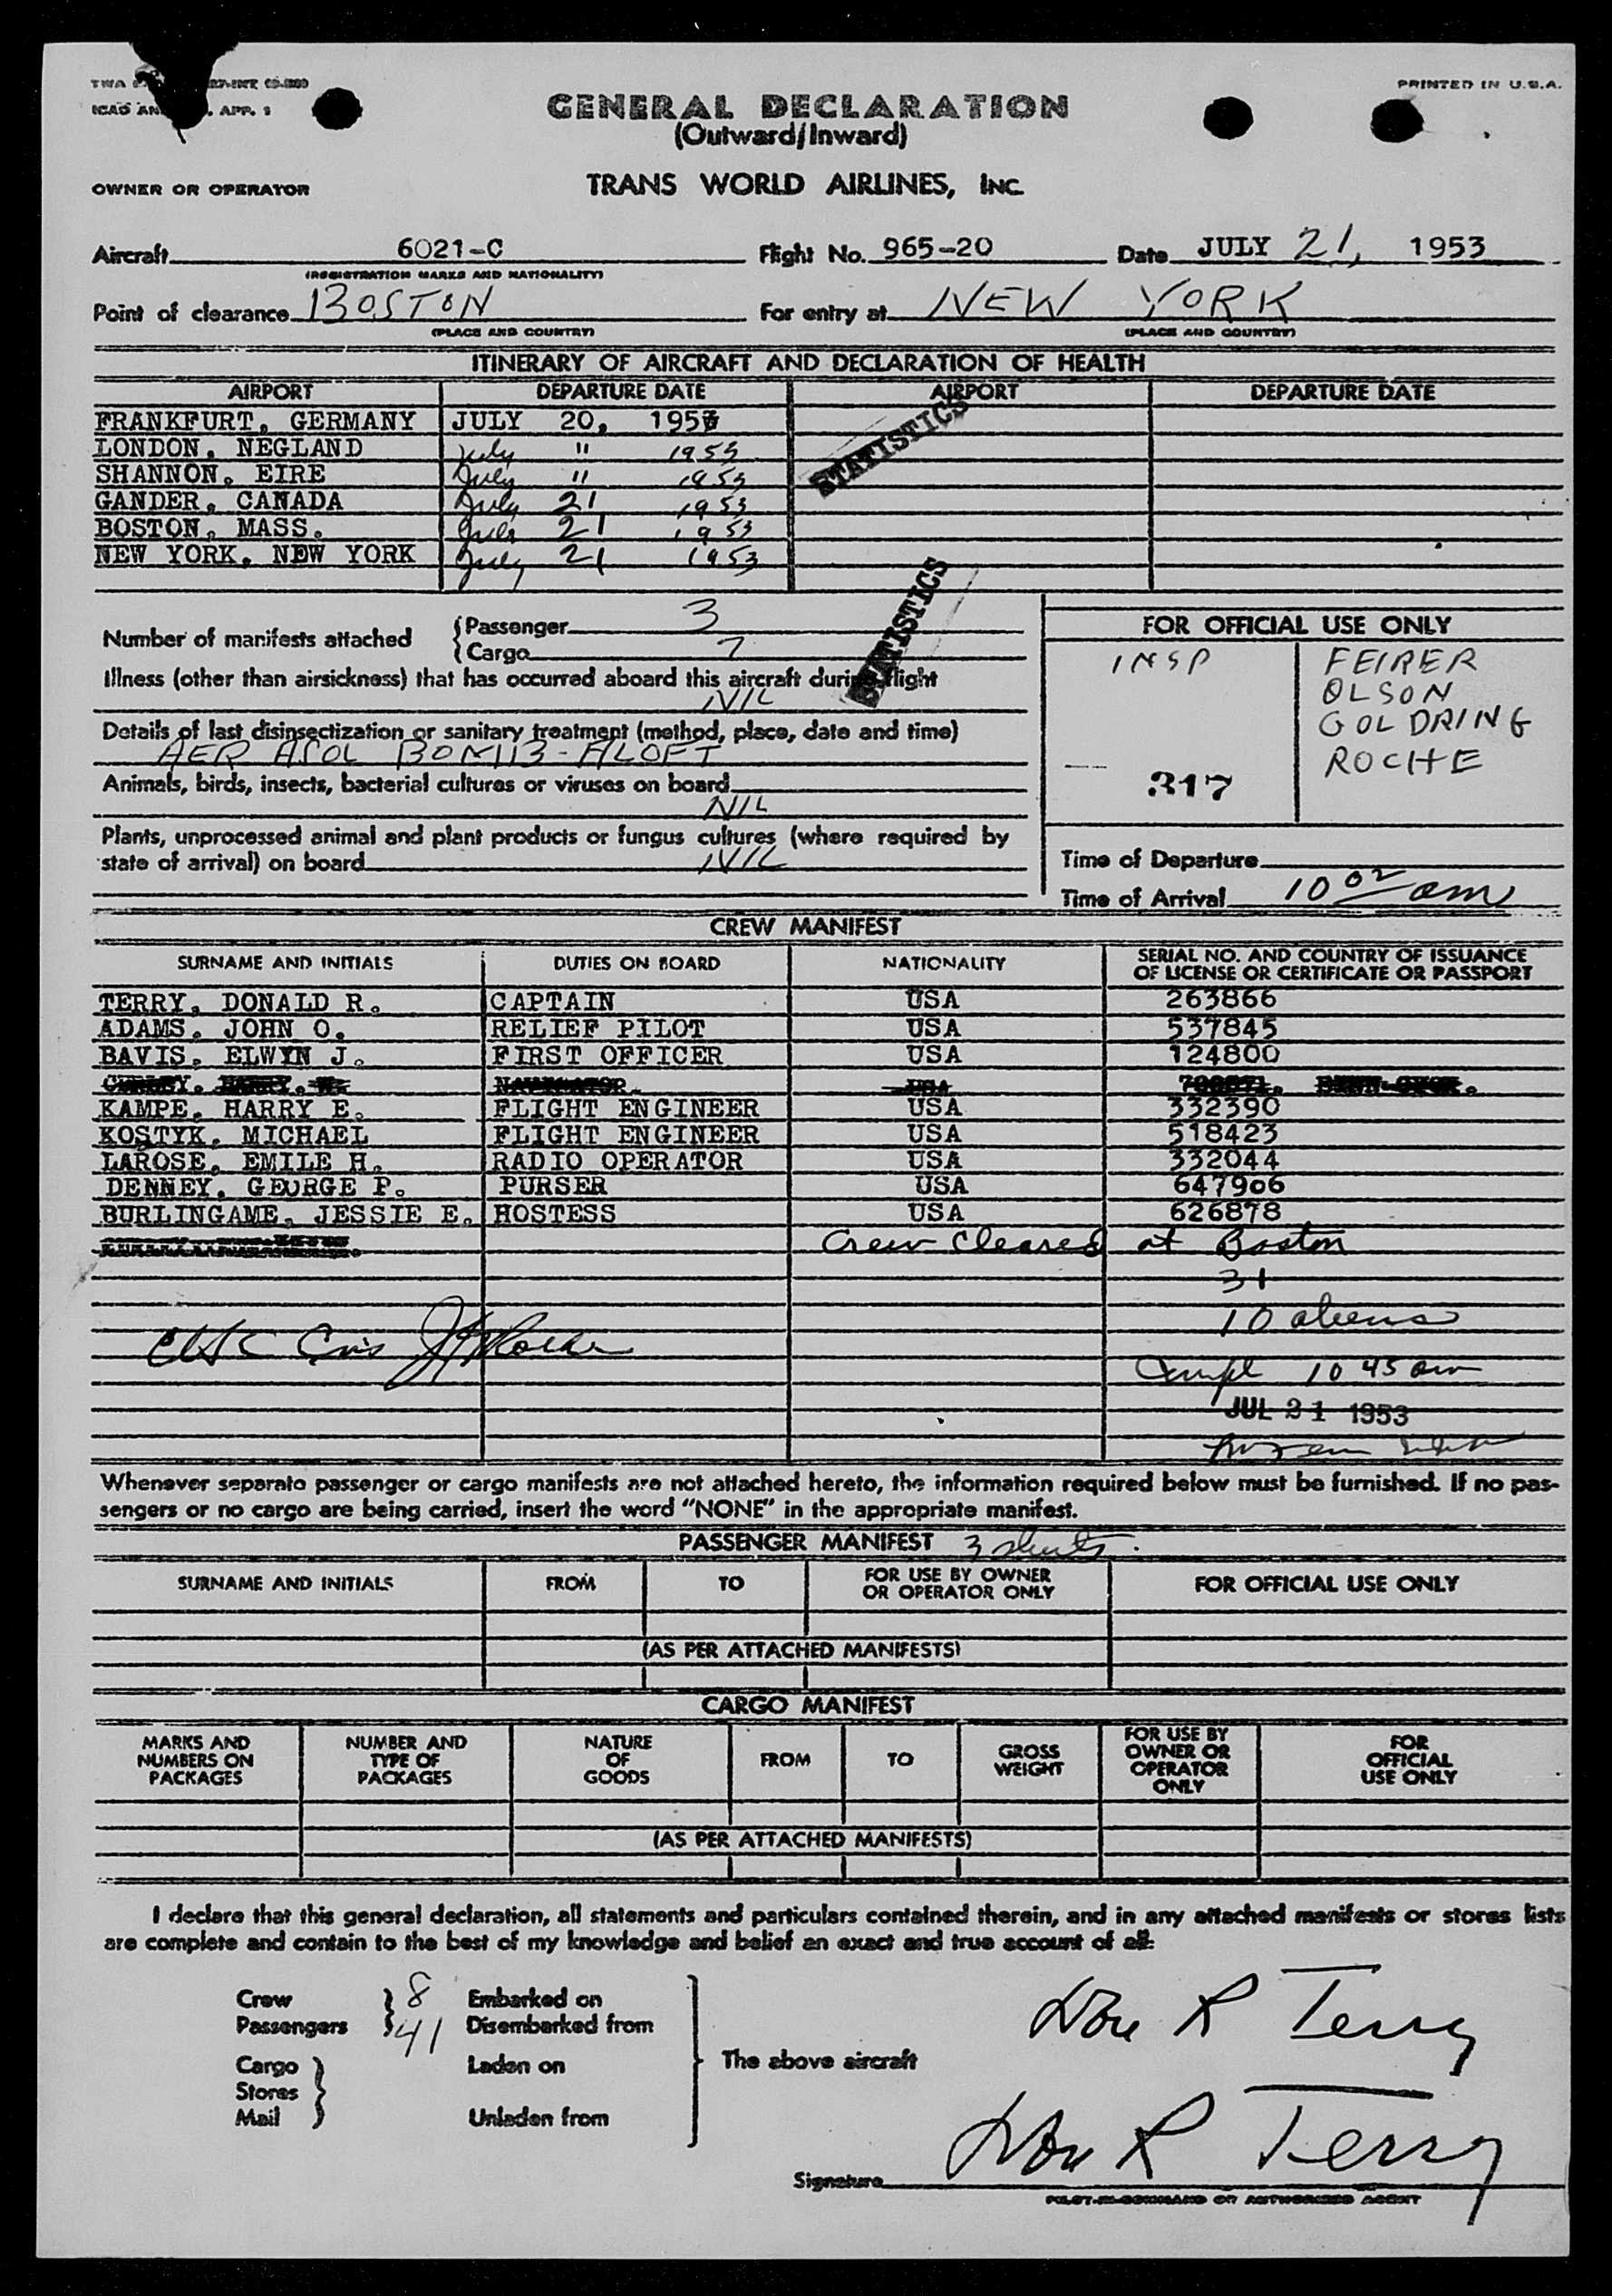 TWA
ICAO AN . APP. 1
PRINTED IN U.S.A.
GENERAL DECLARATION
(Outward/Inward)
OWNER OR OPERATOR TRANS WORLD AIRLINES, INC.
Aircraft 6021-C Flight No. 965-20 Date JULY 21, 1953
(REGISTRATION MARKS AND NATIONALITY)
Point of clearance BOSTON For entry at NEW YORK
(PLACE AND COUNTRY) (PLACE AND COUNTRY)
ITINERARY OF AIRCRAFT AND DECLARATION OF HEALTH
AIRPORT DEPARTURE DATE AIRPORT DEPARTURE DATE
FRANKFURT, GERMANY JULY 20, 1953
LONDON, NEGLAND July " 1953
SHANNON, EIRE July " 1953
GANDER, CANADA July 21 1953
BOSTON, MASS. July 21 1953
NEW YORK, NEW YORK July 21 1953
STATISTICS
STATISTICS
Number of manifests attached
{Passenger 3
{Cargo 7
Illness (other than airsickness) that has occurred aboard this aircraft during flight
NIL
Details of last disinsectization or sanitary treatment (method, place, date and time)
AER ASOL BOMB-ALOFT
Animals, birds, insects, bacterial cultures or viruses on board
NIL
Plants, unprocessed animal and plant products or fungus cultures (where required by
state of arrival) on board NIL
FOR OFFICIAL USE ONLY
INSP FEIRER
OLSON
GOLDRING
ROCHE
317
Time of Departure
Time of Arrival 10 02 am
CREW MANIFEST
SURNAME AND INITIALS DUTIES ON BOARD NATIONALITY SERIAL NO. AND COUNTRY OF ISSUANCE
OF LICENSE OR CERTIFICATE OR PASSPORT
TERRY, DONALD R. CAPTAIN USA 263866
ADAMS, JOHN O. RELIEF PILOT USA 537845
BAVIS, ELWYN J. FIRST OFFICER USA 124800
NAVIGATOR USA
KAMPE, HARRY E. FLIGHT ENGINEER USA 332390
KOSTYK, MICHAEL FLIGHT ENGINEER USA 518423
LAROSE, EMILE H. RADIO OPERATOR USA 332044
DENNEY, GEORGE P. PURSER USA 647906
BURLINGAME, JESSIE E. HOSTESS USA 626878
Crew Cleared at Boston
31
10 aliens
Compl 10 45 am
JUL 21 1953
Whenever separate passenger or cargo manifests are not attached hereto, the information required below must be furnished. If no pas-
sengers or no cargo are being carried, insert the word "NONE" in the appropriate manifest.
PASSENGER MANIFEST 3 sheets.
SURNAME AND INITIALS FROM TO FOR USE BY OWNER
OR OPERATOR ONLY FOR OFFICIAL USE ONLY
(AS PER ATTACHED MANIFESTS)
CARGO MANIFEST
MARKS AND
NUMBERS ON
PACKAGES
NUMBER AND
TYPE OF
PACKAGES
NATURE
OF
GOODS
FROM TO
GROSS
WEIGHT
FOR USE BY
OWNER OR
OPERATOR
ONLY
FOR
OFFICIAL
USE ONLY
(AS PER ATTACHED MANIFESTS)
I declare that this general declaration, all statements and particulars contained therein, and in any attached manifests or stores lists
are complete and contain to the best of my knowledge and belief an exact and true account of all:
Crew } 8 Embarked on
Passengers } 41 Disembarked from
Cargo } Laden on
Stores
Mail } Unladen from
The above aircraft
Don R Terry
Don R Terry
Signature
PILOT-IN-COMMAND OR AUTHORIZED AGENT